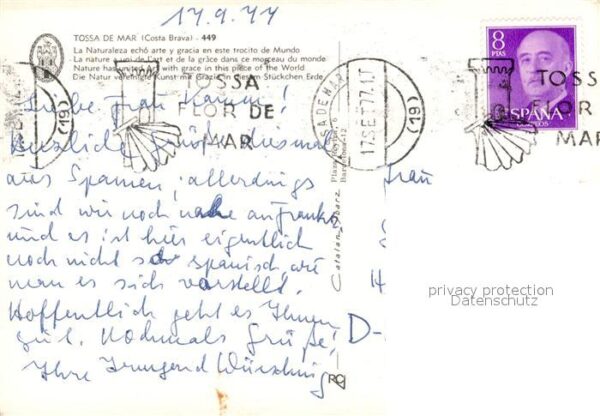 17.9.77
TOSSA DE MAR (Costa Brava) - 449
La Naturaleza echó arte y gracia en este trocito de Mundo
La nature a uni de l'art et de la grâce dans ce morceau du monde
Nature has united art with grace in this piece of the World
Die Natur vereinigte Kunst mit Grazie in diesem Stückchen Erde
TOSSA
FLOR DE
MAR
(19)
17 SET 77
(19)
8
PTAS
ESPAÑA
CORREOS
TOSS
FLOR
MAR
Liebe Frau
Herzliche Grüße diesmal
aus Spanien, allerdings
sind wir noch nahe
und es ist hier eigentlich
noch nicht so spanisch, wie
man es sich vorstellt.
Hoffentlich geht es Ihnen
gut. Nochmals Grüße!
Ihre Irmgard
Frau
H
D-
Barcelona-12
privacy protection
Datenschutz